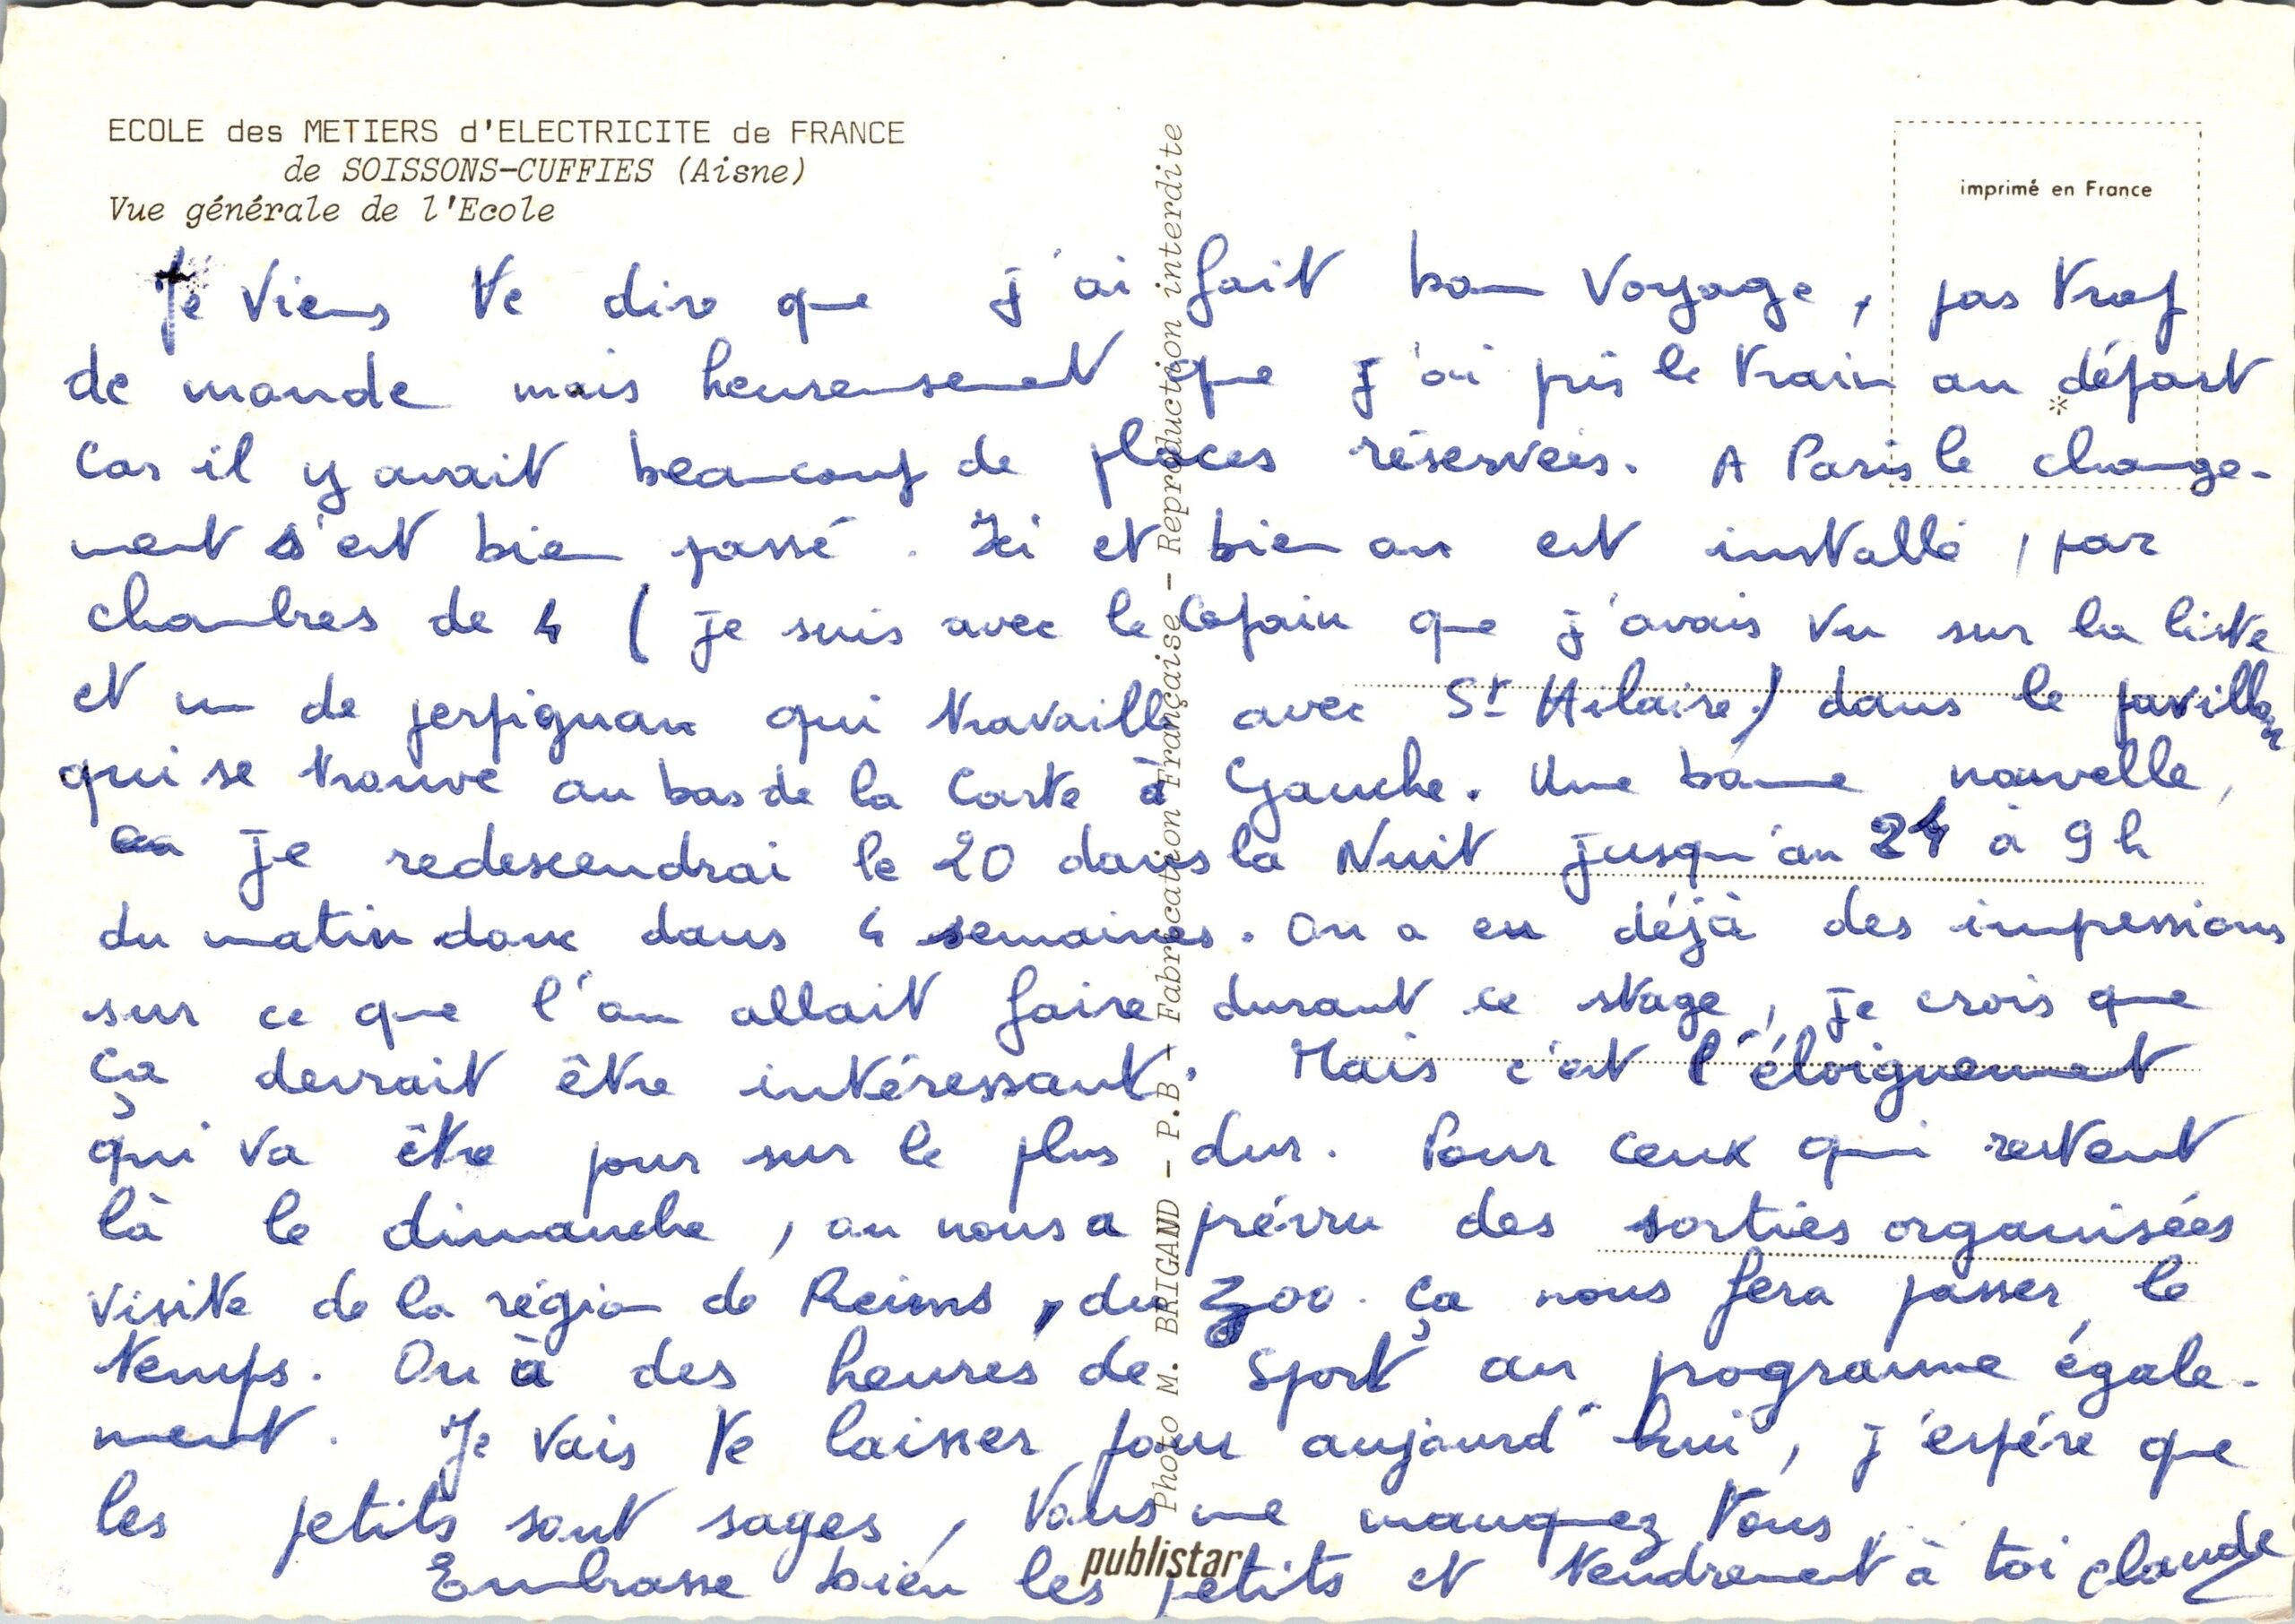 ECOLE des METIERS d'ELECTRICITE de FRANCE
de SOISSONS-CUFFIES (Aisne)
Vue générale de l'Ecole
imprimé en France
*
Je viens te dire que j'ai fait bon voyage, pas trop
de monde mais heureusement que j'ai pris le train au départ
car il y avait beaucoup de places réservées. A Paris le change-
ment s'est bien passé. Ici et bien on est installé, par
chambres de 4 (je suis avec le copain que j'avais vu sur la liste
et un de perpignan qui travaille avec St Hilaire) dans le pavillon
qui se trouve au bas de la carte à Gauche. Une bonne nouvelle,
je redescendrai le 20 dans la Nuit jusqu'au 24 à 9 h
du matin donc dans 4 semaines. On a eu déjà des impressions
sur ce que l'on allait faire durant ce stage, je crois que
ça devrait être intéressant. Mais c'est l'éloignement
qui va être pour sur le plus dur. Pour ceux qui restent
là le dimanche, on nous a prévu des sorties organisées
visite de la région de Reims, du zoo. ça nous fera passer le
temps. On à des heures de Sport au programme égale-
ment. Je vais te laisser pour aujourd'hui, j'espère que
les petits sont sages, vous me manquez tous
Embrasse bien les petits et tendrement à toi Claude
Photo M. BRIGAND - P.B - Fabrication Française - Reproduction interdite
publistar